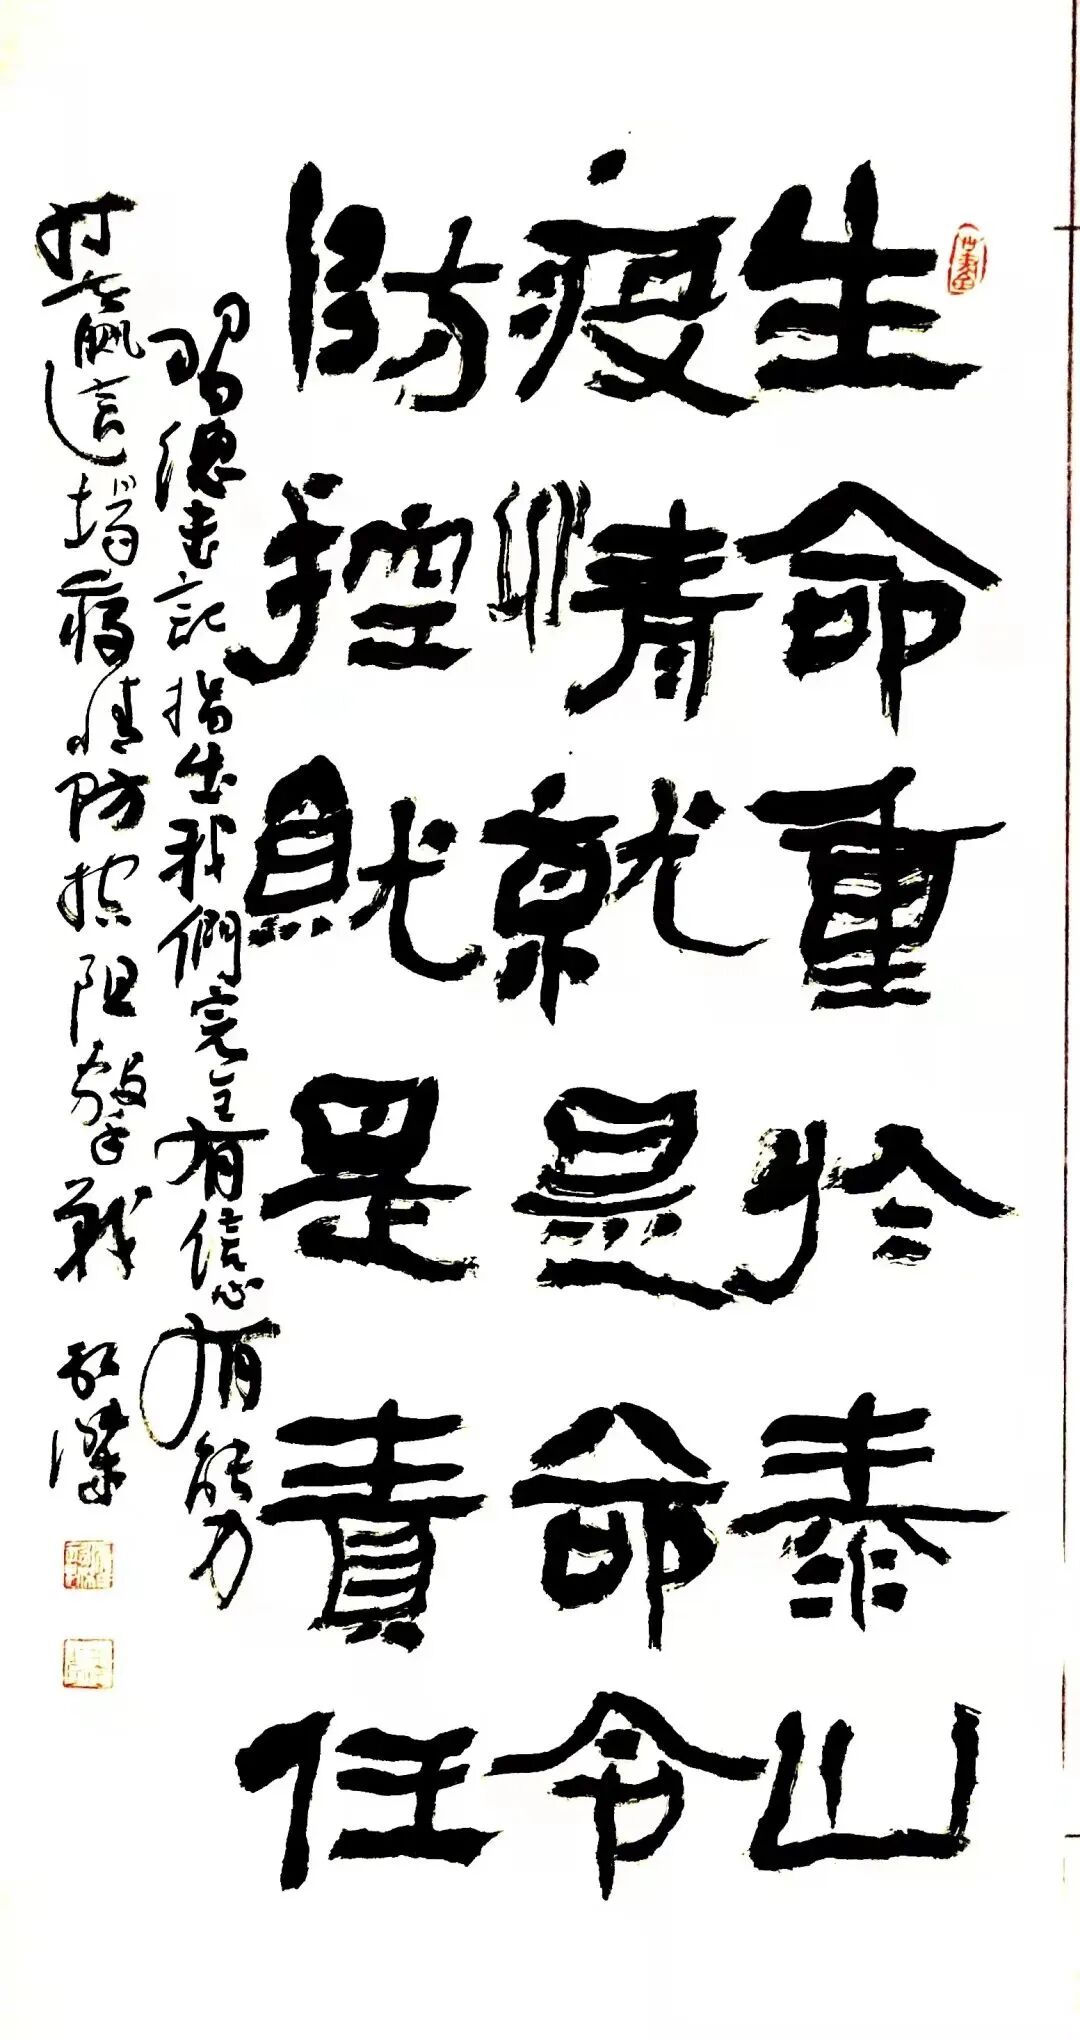 生命重於泰山
疫情就是命令
防控就是責任
習總書記指出我們完全有信心有能力
打贏這場疫情防控阻擊戰